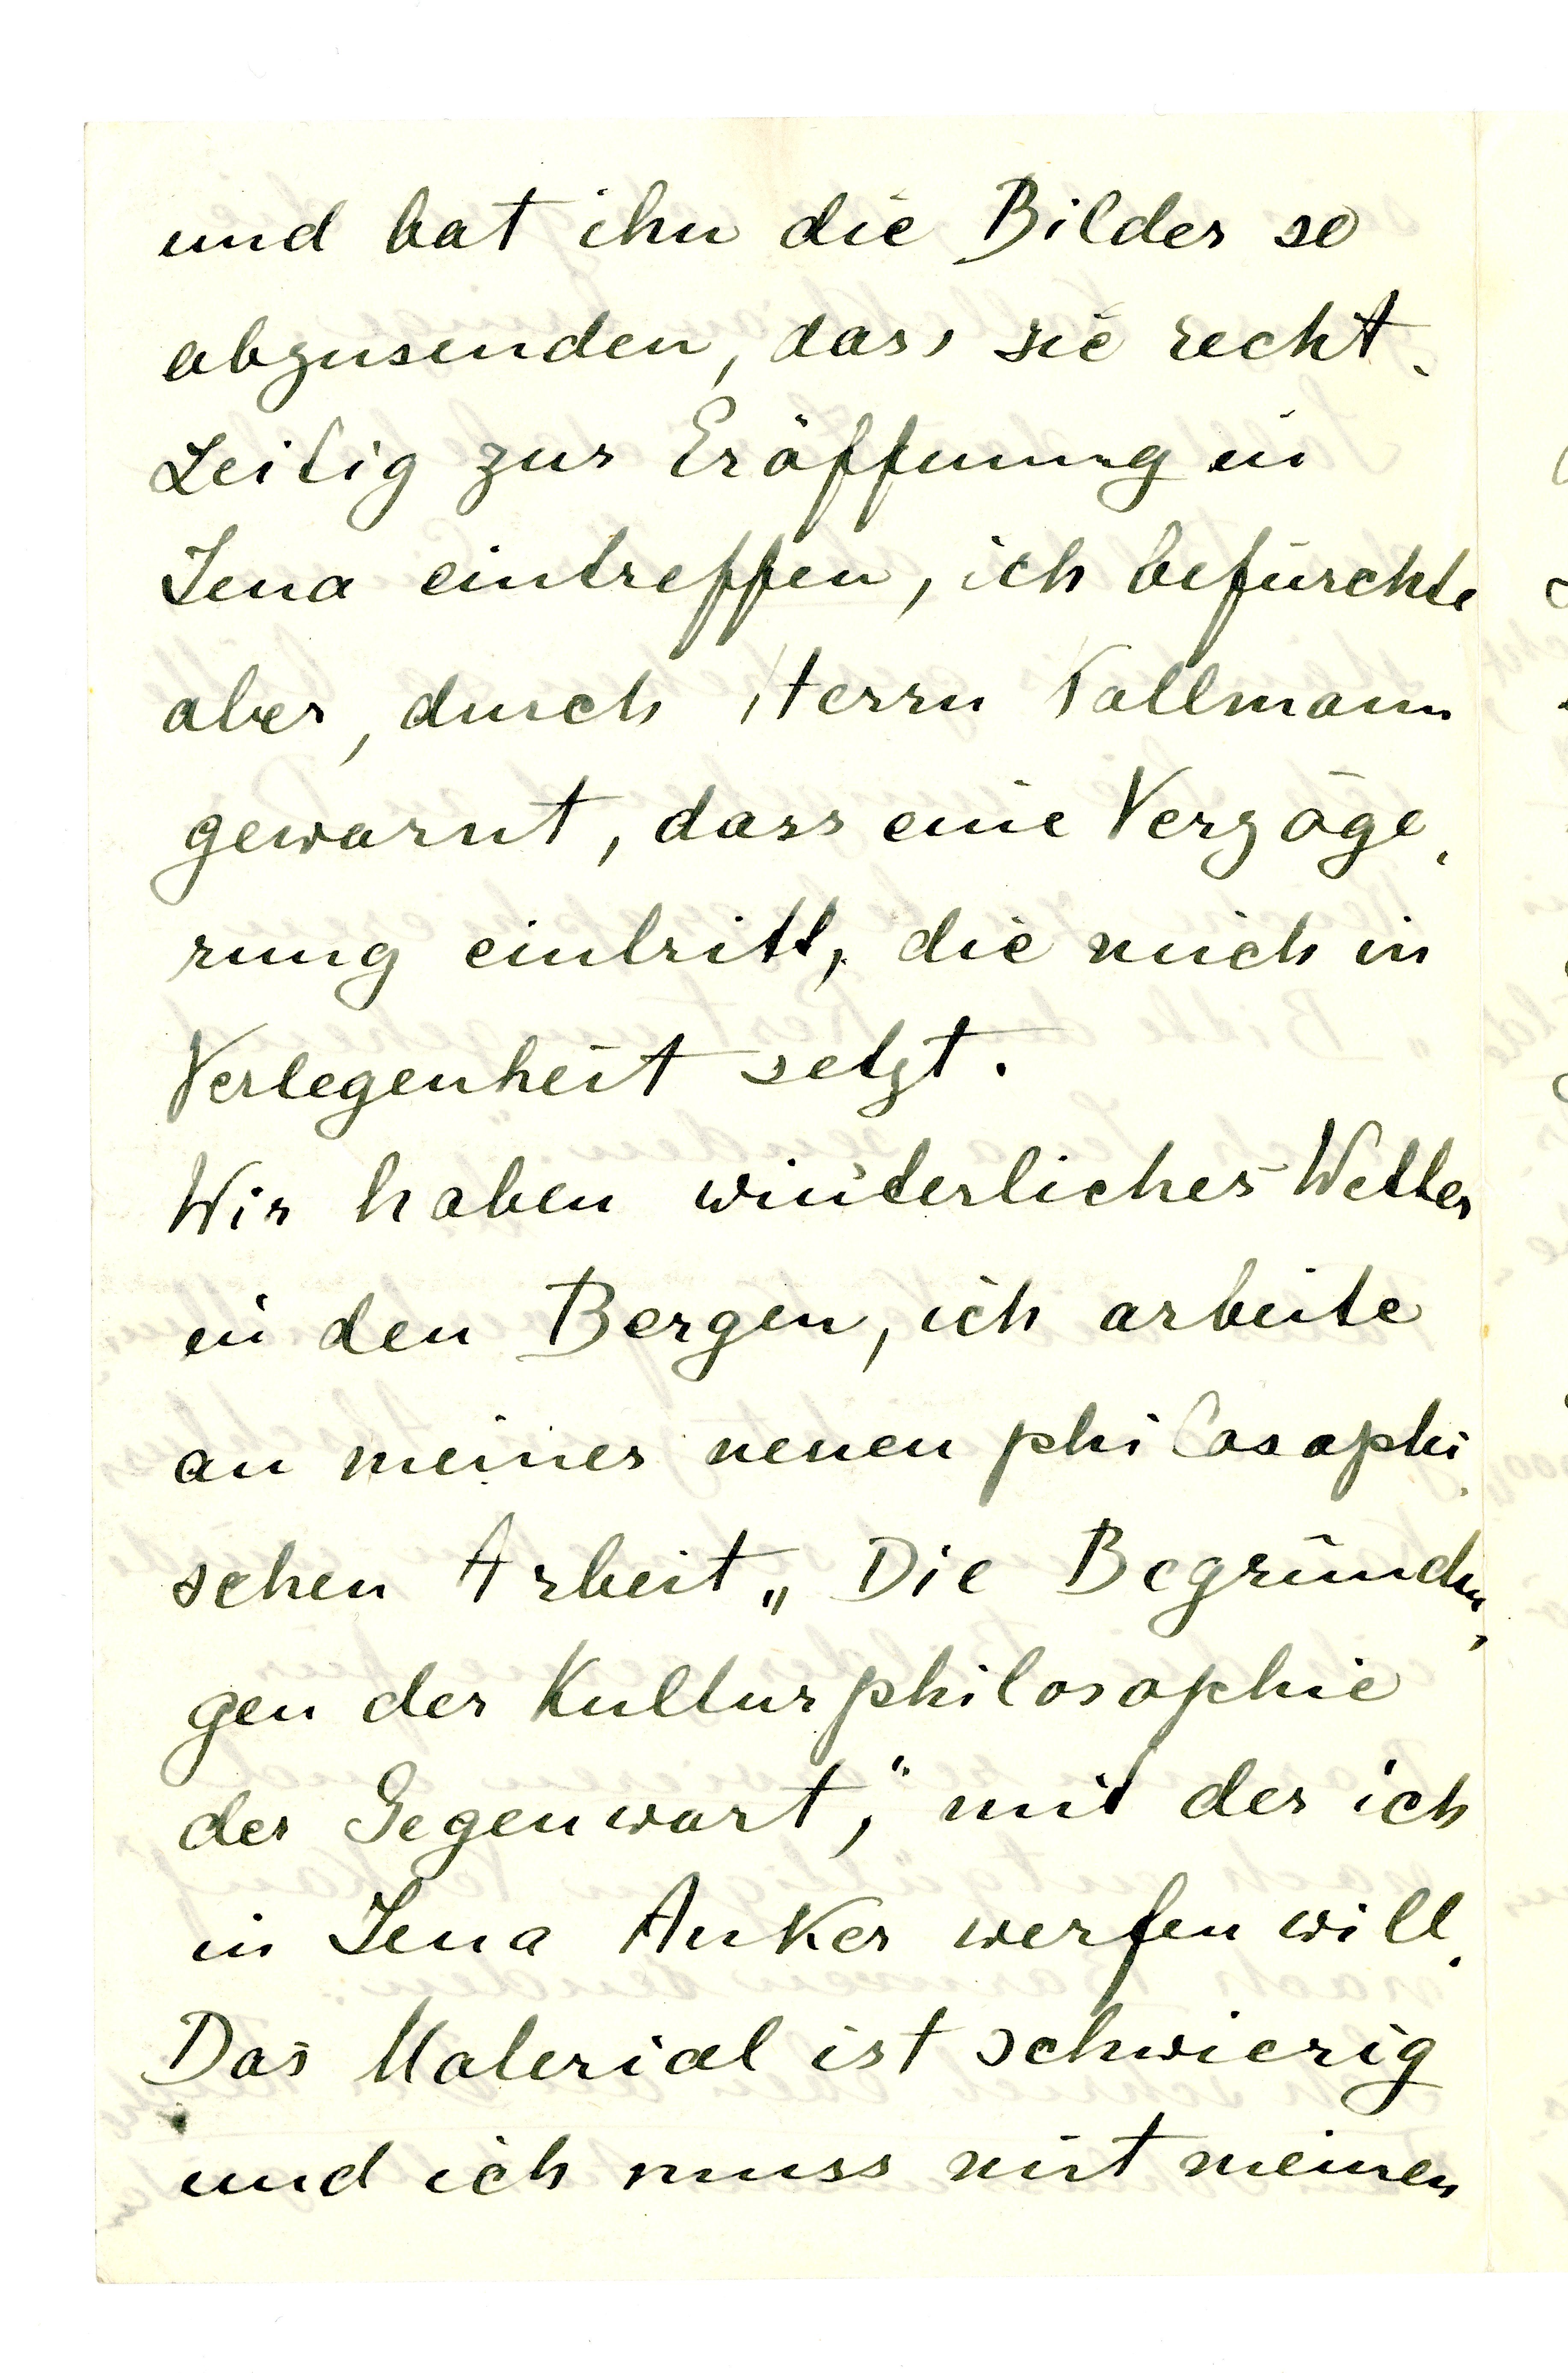 und bat ihn die Bilder so
abzusenden, dass sie recht-
zeitig zur Eröffnung in
Jena eintreffen, ich befürchte
aber, durch Herrn Kollmann
gewarnt, dass eine Verzöge-
rung eintritt, die mich in
Verlegenheit setzt.
Wir haben winterliches Wetter
in den Bergen, ich arbeite
an meiner neuen philosophi-
schen Arbeit „Die Begründun-
gen der Kulturphilosophie
der Gegenwart," mit der ich
in Jena Anker werfen will.
Das Material ist schwierig
und ich muss mit meinen